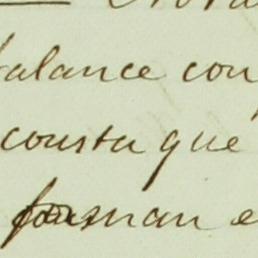 balance con
consta que
forman e